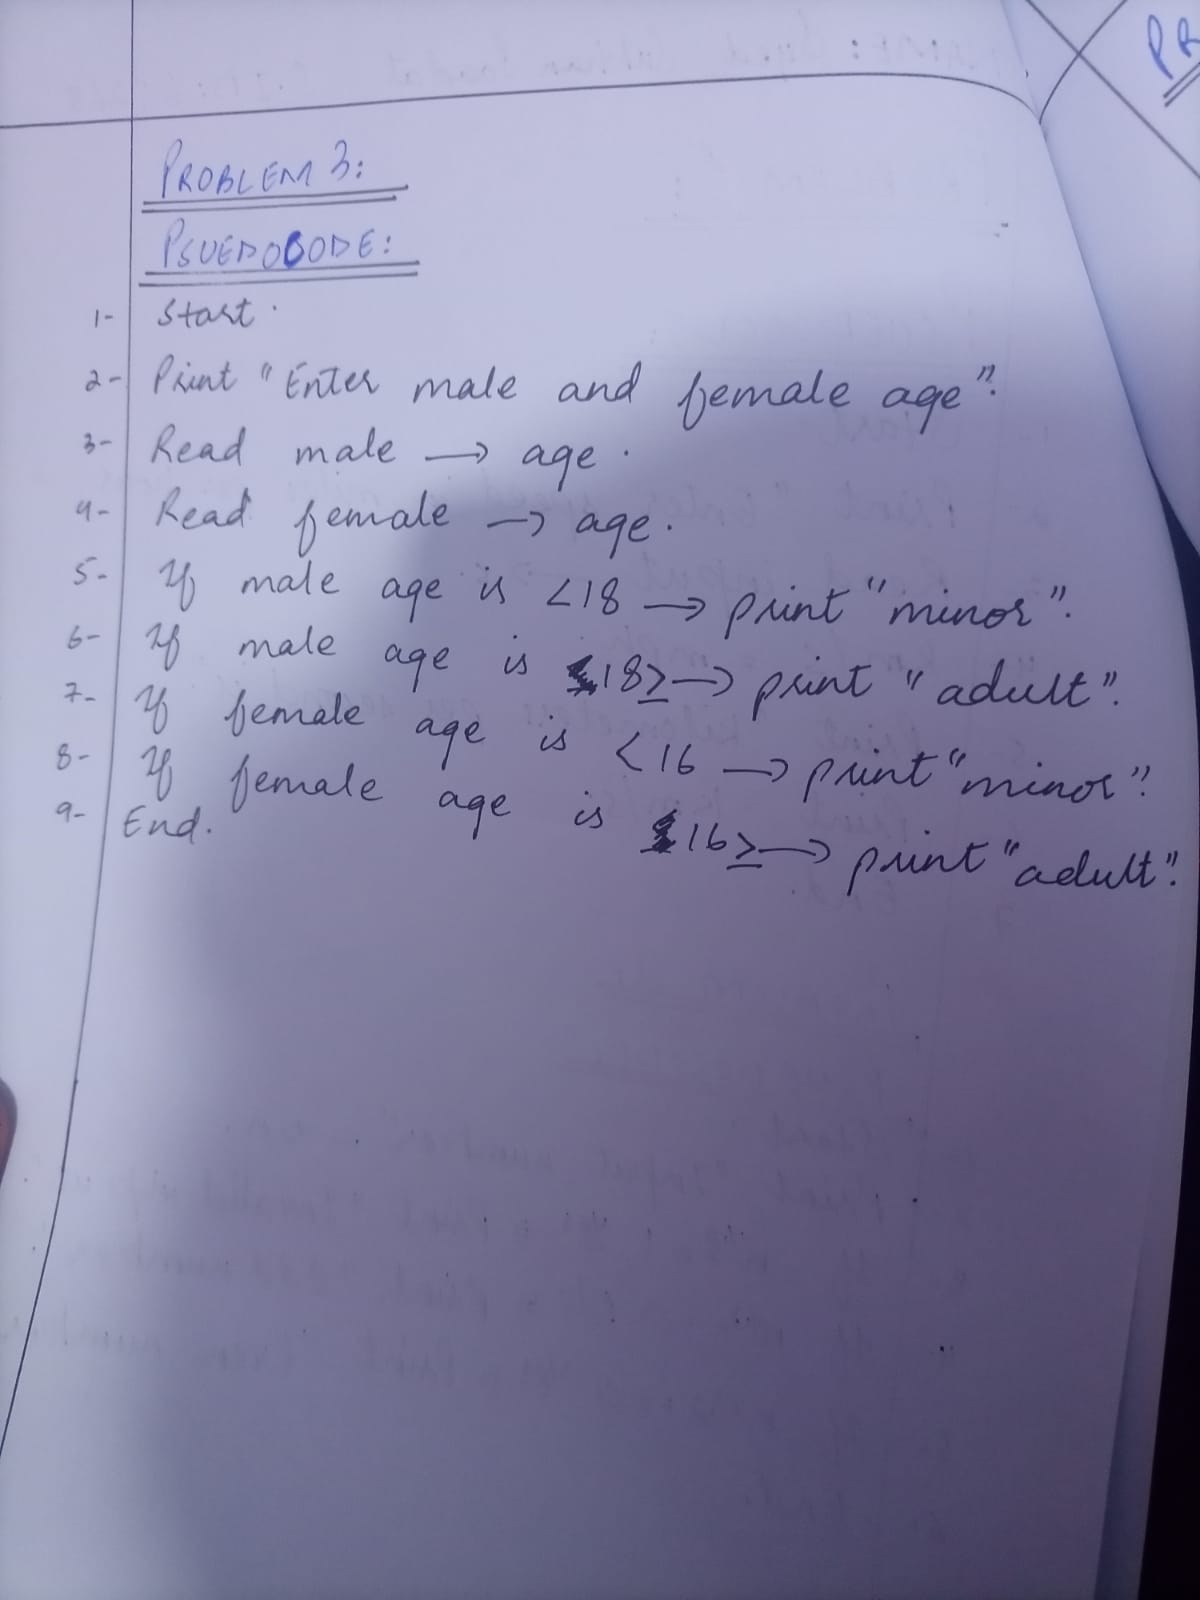 PR
PROBLEM 3:
PSUEDOCODE:
1- Start.
2- Print "Enter male and female age".
3- Read male → age.
4- Read female → age.
5- If male age is <18 → print "minor".
6- If male age is 18≥ → print "adult".
7- If female age is <16 → print "minor".
8- If female age is 16≥ → print "adult".
9- End.